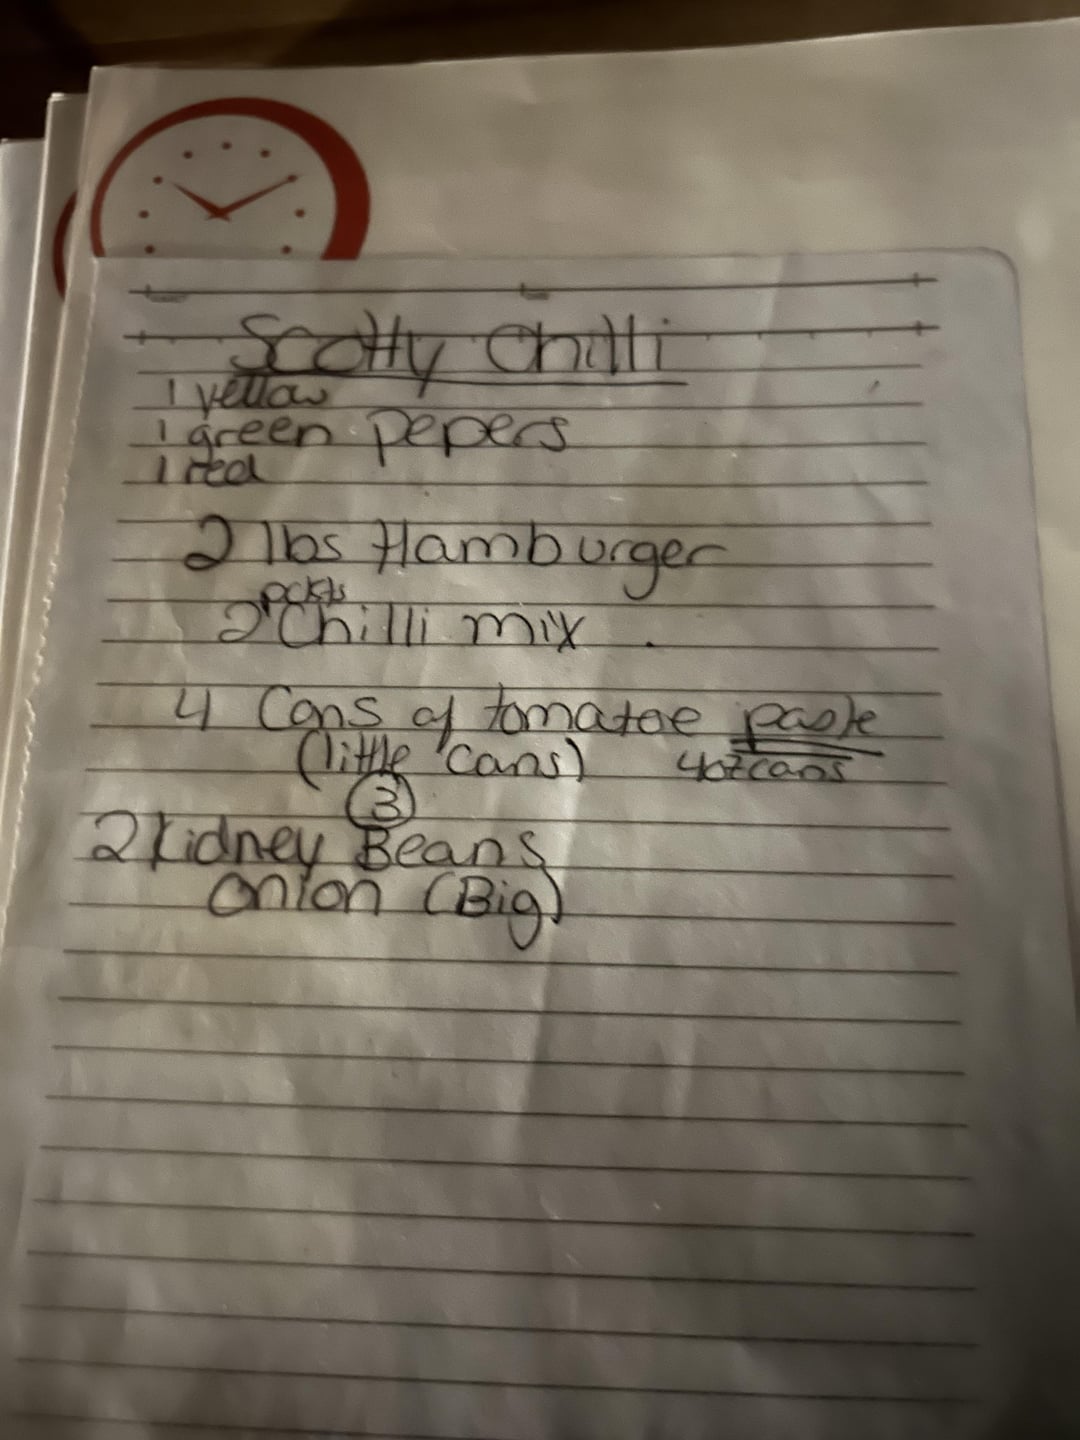 Scotty Chilli
1 yellow
1 green pepers
1 red
2 lbs Hamburger
pckts
2 Chilli mix
4 Cans of tomatoe paste
(little cans) 4oz cans
3
2 Kidney Beans
onion (Big)